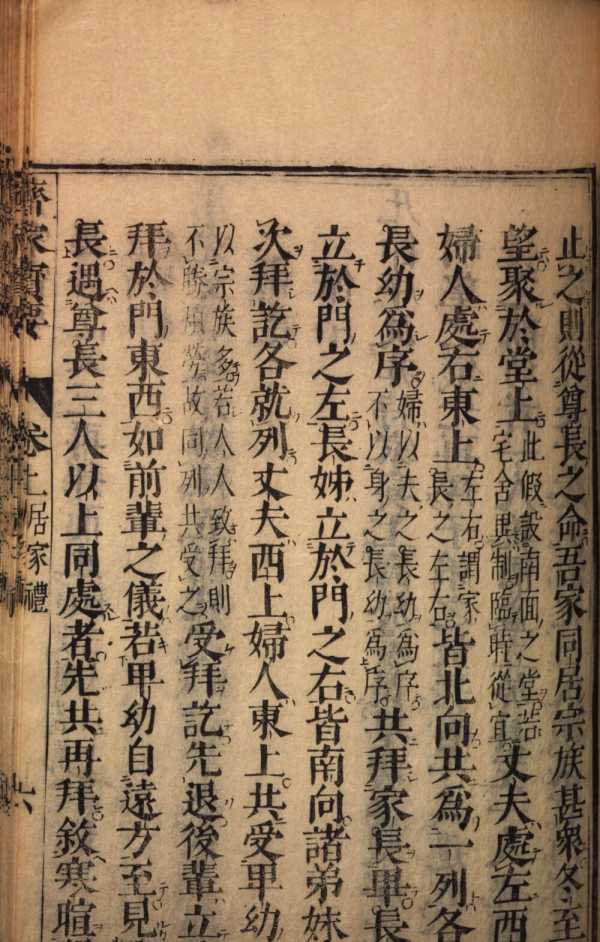 止之則從尊長之命吾家同居宗族甚衆冬至
望聚於堂上此假設南面之堂若宅舍異制臨時從宜丈夫處左西
婦人處右東上左右謂家長之左右皆北向共爲一列各
長幼爲序婦以夫之長幼爲序不以身之長幼爲序共拜家長畢長
立於門之左長姊立於門之右皆南向諸弟妹
次拜訖各就列丈夫西上婦人東上共受卑幼
以宗族多若人人致拜則不勝煩勞故同列共受之受拜訖先退後輩立
拜於門東西如前輩之儀若卑幼自遠方至見
長遇尊長三人以上同處者先共再拜敘寒暄
齊家寶要 卷上居家禮 六